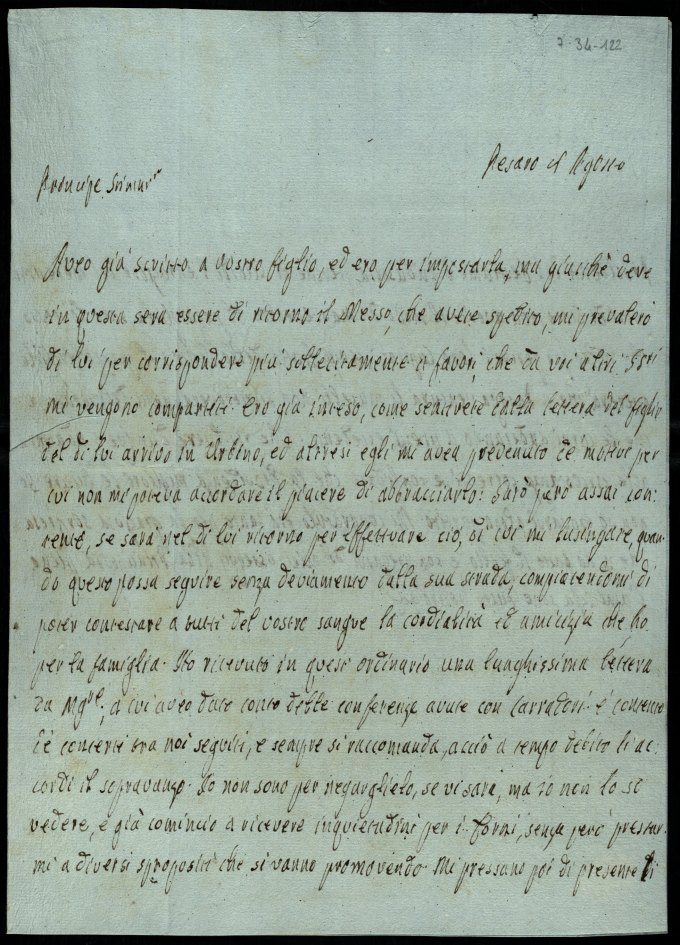 7-34-122
Pesaro 21 Agosto
Principe Stimat.mo
Aveo già scritto a vostro figlio, ed ero per impostarla, ma giacchè deve
in questa sera essere di ritorno il Messo, che avete spedito, mi prevalerò
di lui per corrispondere più sollecitamente a favori, che da voi altri SS.ri
mi vengono compartiti. Ero già inteso, come sentirete dalla lettera del figlio
del di lui arrivo in Urbino, ed altresì egli mi avea prevenuto de motivi per
cui non mi poteva accordare il piacere di abbracciarlo: Sarò però assai con:
tento, se sarà nel di lui ritorno per effettuare ciò, di cui mi lusingare, quan:
do questo possa seguire senza deviamento dalla sua strada, compiacendomi di
poter contestare a tutti del vostro sangue la cordialità ed amicizia che ho
per la famiglia. Ho ricevuto in quest'ordinario una lunghissima lettera
da Mg.re, a cui aveo dato conto delle conferenze avute con Carradori. è contento
de concerti tra noi seguiti, e sempre si raccomanda, acciò a tempo debito li ac:
cordi il sopravanzo. Io non sono per negarglielo, se vi sarà, ma io non lo sò
vedere, e già comincio a ricevere inquietudini per i forni, senza però prestar:
mi a diversi spropositi che si vanno promovendo. Mi pressano poi di presente li